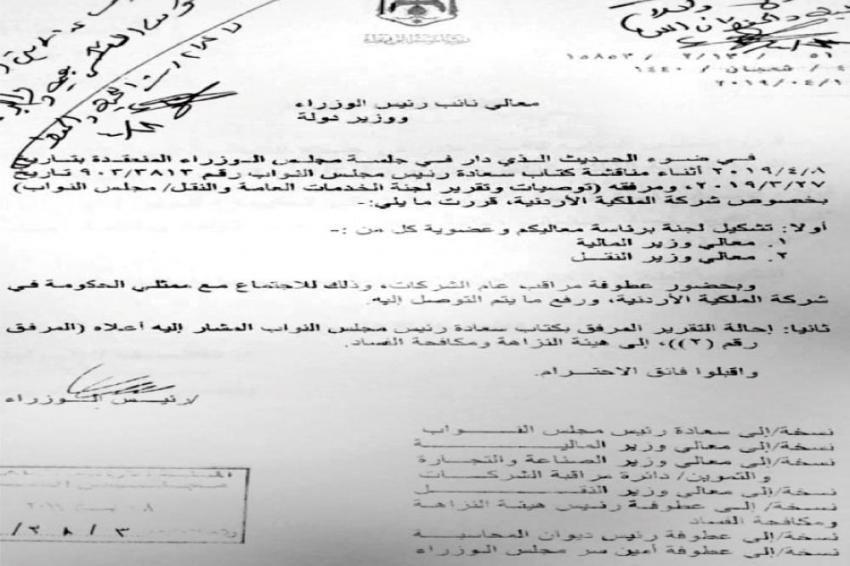 ١٥٨٥٣ / ٢ / ١٣ / ٥١
شعبان / ١٤٤٠
٢٠١٩/٠٤/
معالي نائب رئيس الوزراء
ووزير دولة
في ضوء الحديث الذي دار في جلسة مجلس الوزراء المنعقدة بتاريخ
٢٠١٩/٤/٨ أثناء مناقشة كتاب سعادة رئيس مجلس النواب رقم ٩٠٣/٣٨١٣ تاريخ
٢٠١٩/٣/٢٧، ومرفقه (توصيات وتقرير لجنة الخدمات العامة والنقل/ مجلس النواب)
بخصوص شركة الملكية الأردنية، قررت ما يلي:-
أولا: تشكيل لجنة برئاسة معاليكم وعضوية كل من :-
١. معالي وزير المالية
٢. معالي وزير النقل
وبحضور عطوفة مراقب عام الشركات، وذلك للاجتماع مع ممثلي الحكومة في
شركة الملكية الأردنية، ورفع ما يتم التوصل إليه.
ثانيا: إحالة التقرير المرفق بكتاب سعادة رئيس مجلس النواب المشار إليه أعلاه (المرفق
رقم (٢))، إلى هيئة النزاهة ومكافحة الفساد.
واقبلوا فائق الاحترام.
رئيس الوزراء
نسخة/إلى سعادة رئيس مجلس النواب
نسخة/إلى معالي وزير المالية
نسخة/إلى معالي وزير الصناعة والتجارة
والتموين/ دائرة مراقبة الشركات
نسخة/إلى معالي وزير النقل
نسخة/ إلى عطوفة رئيس هيئة النزاهة
ومكافحة الفساد
نسخة/إلى عطوفة رئيس ديوان المحاسبة
نسخة/إلى عطوفة أمين سر مجلس الوزراء